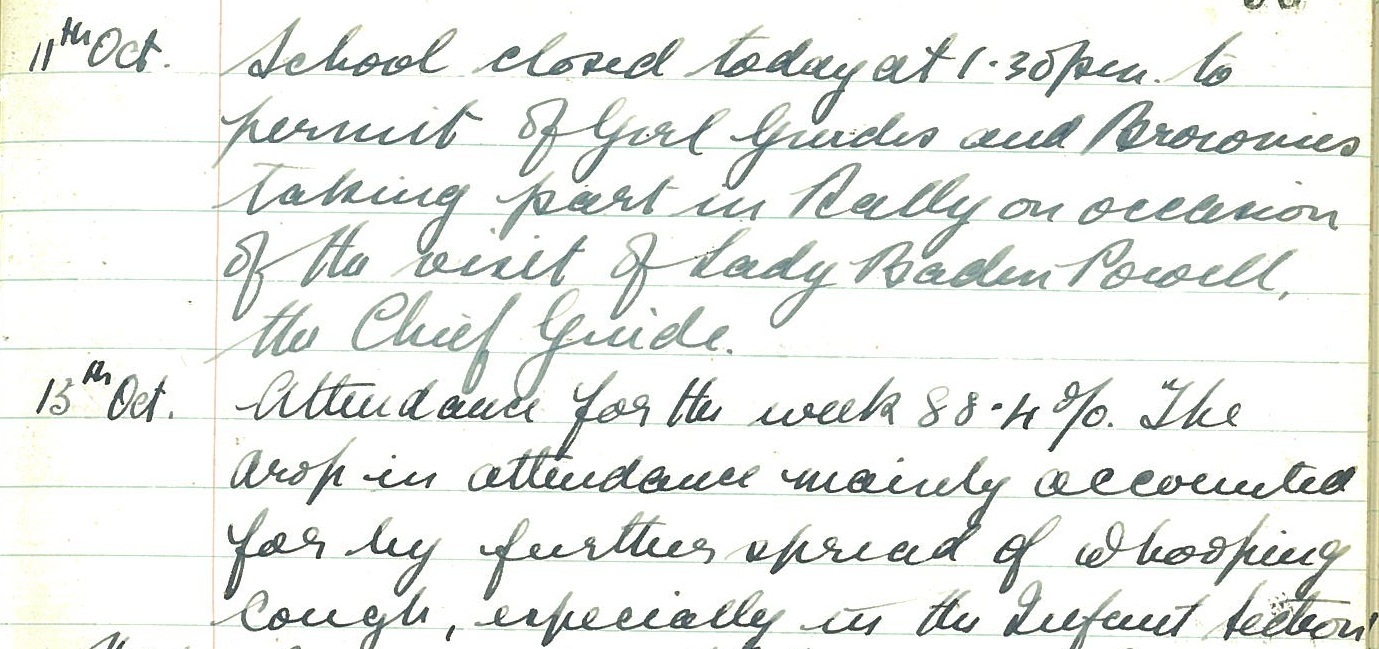 11th Oct. School closed today at 1.30pm. to
permit of Girl Guides and Brownies
taking part in Rally on occasion
of the visit of Lady Baden Powell,
the Chief Guide.
13th Oct. Attendance for the week 88.4%. The
drop in attendance mainly accounted
for by further spread of Whooping
Cough, especially in the Infant Section